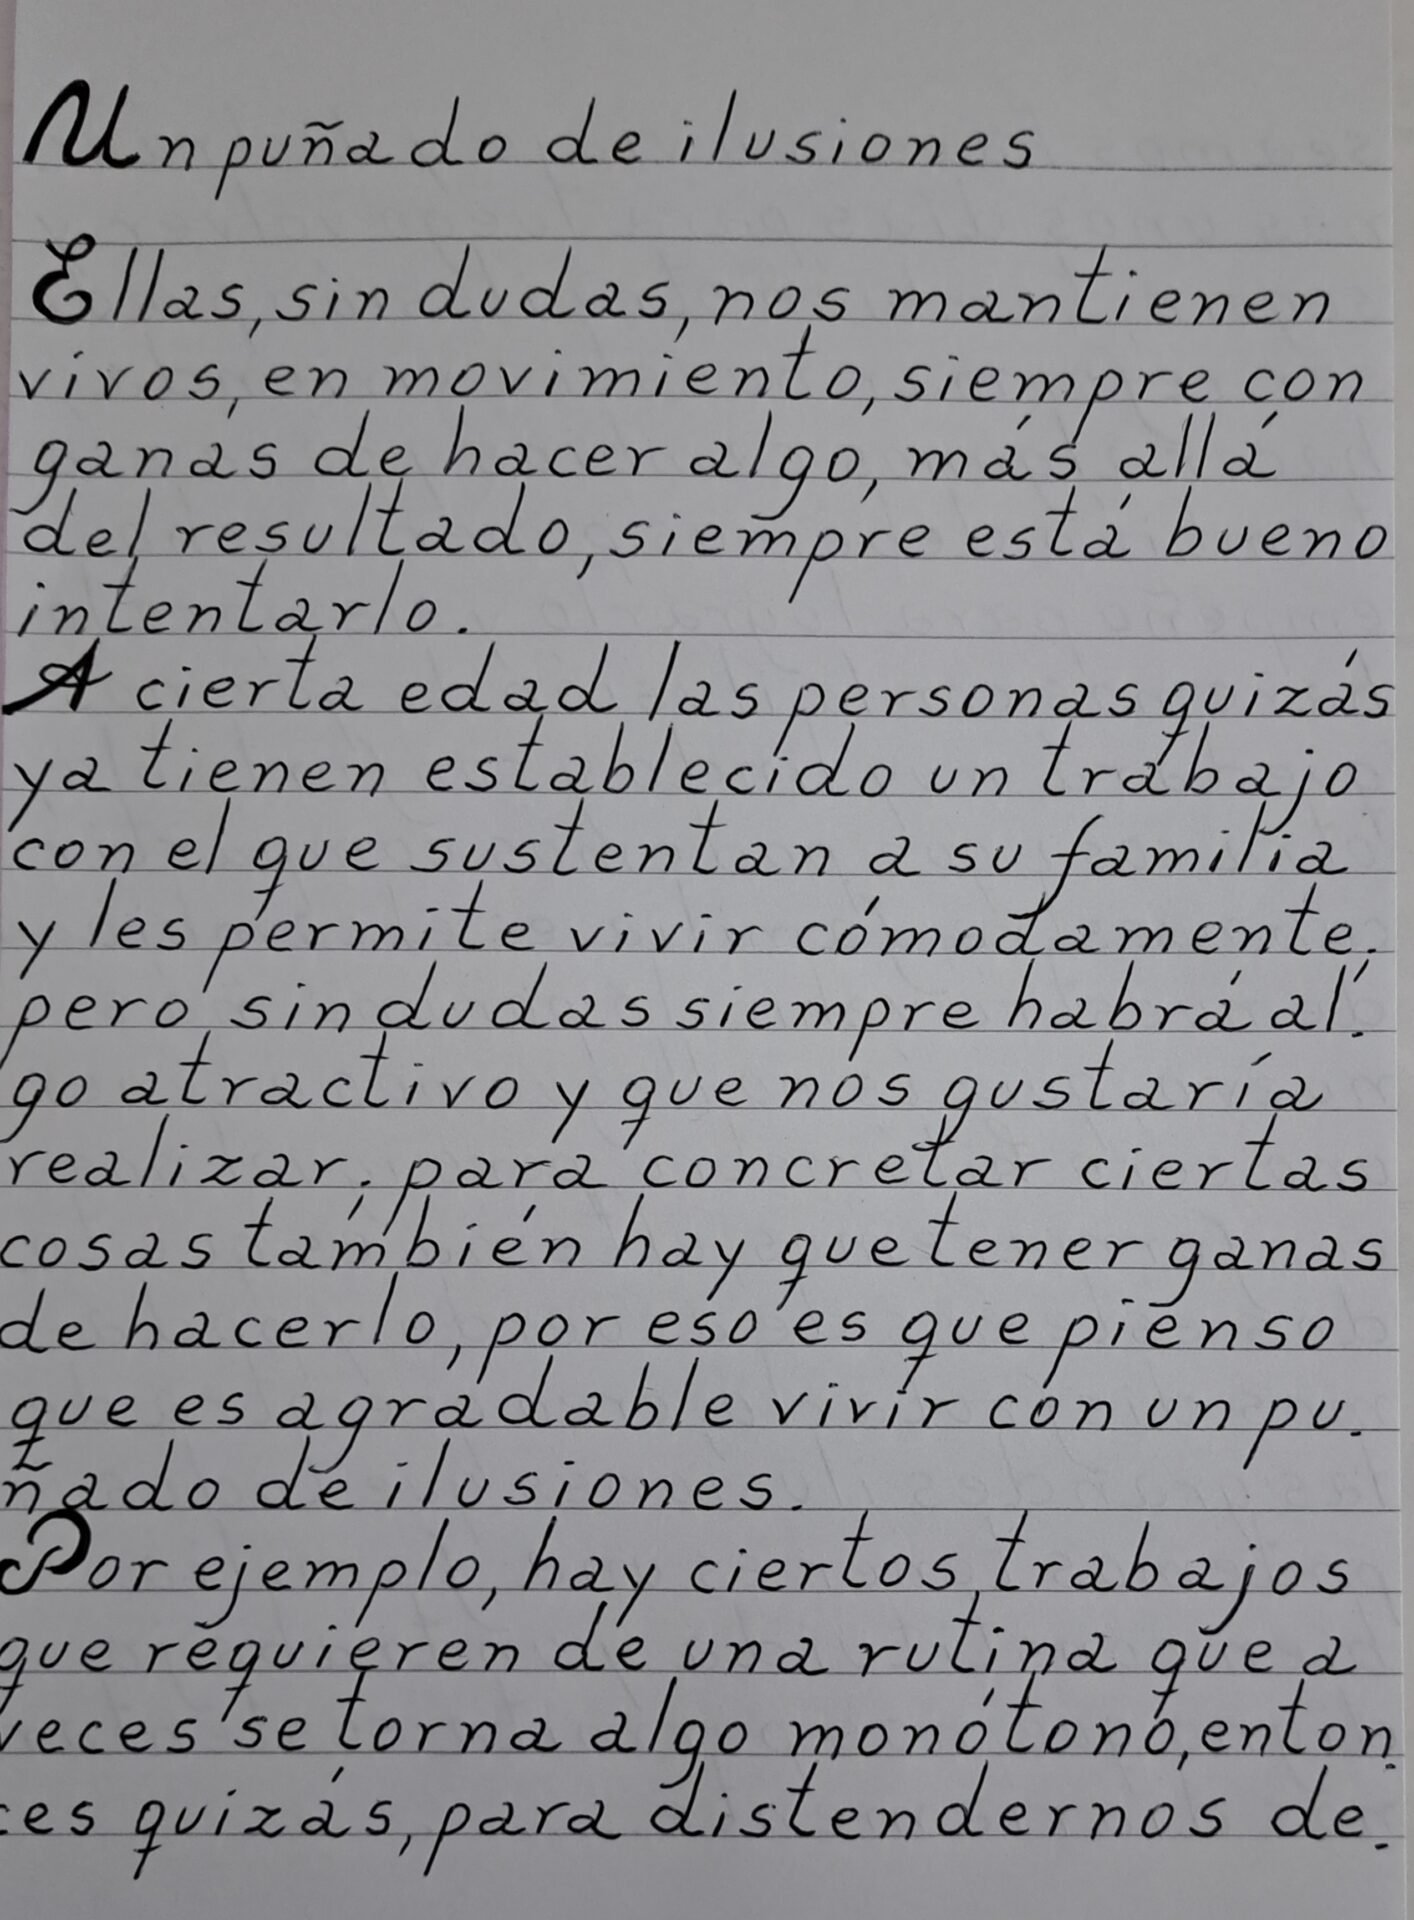 Un puñado de ilusiones
Ellas, sin dudas, nos mantienen
vivos, en movimiento, siempre con
ganas de hacer algo, más allá
del resultado, siempre está bueno
intentarlo.
A cierta edad las personas quizás
ya tienen establecido un trabajo
con el que sustentan a su familia
y les permite vivir cómodamente;
pero sin dudas siempre habrá al.
go atractivo y que nos gustaría
realizar; para concretar ciertas
cosas también hay que tener ganas
de hacerlo, por eso es que pienso
que es agradable vivir con un pu.
ñado de ilusiones.
Por ejemplo, hay ciertos trabajos
que requieren de una rutina que a
veces se torna algo monótono, enton.
ces quizás, para distendernos de.